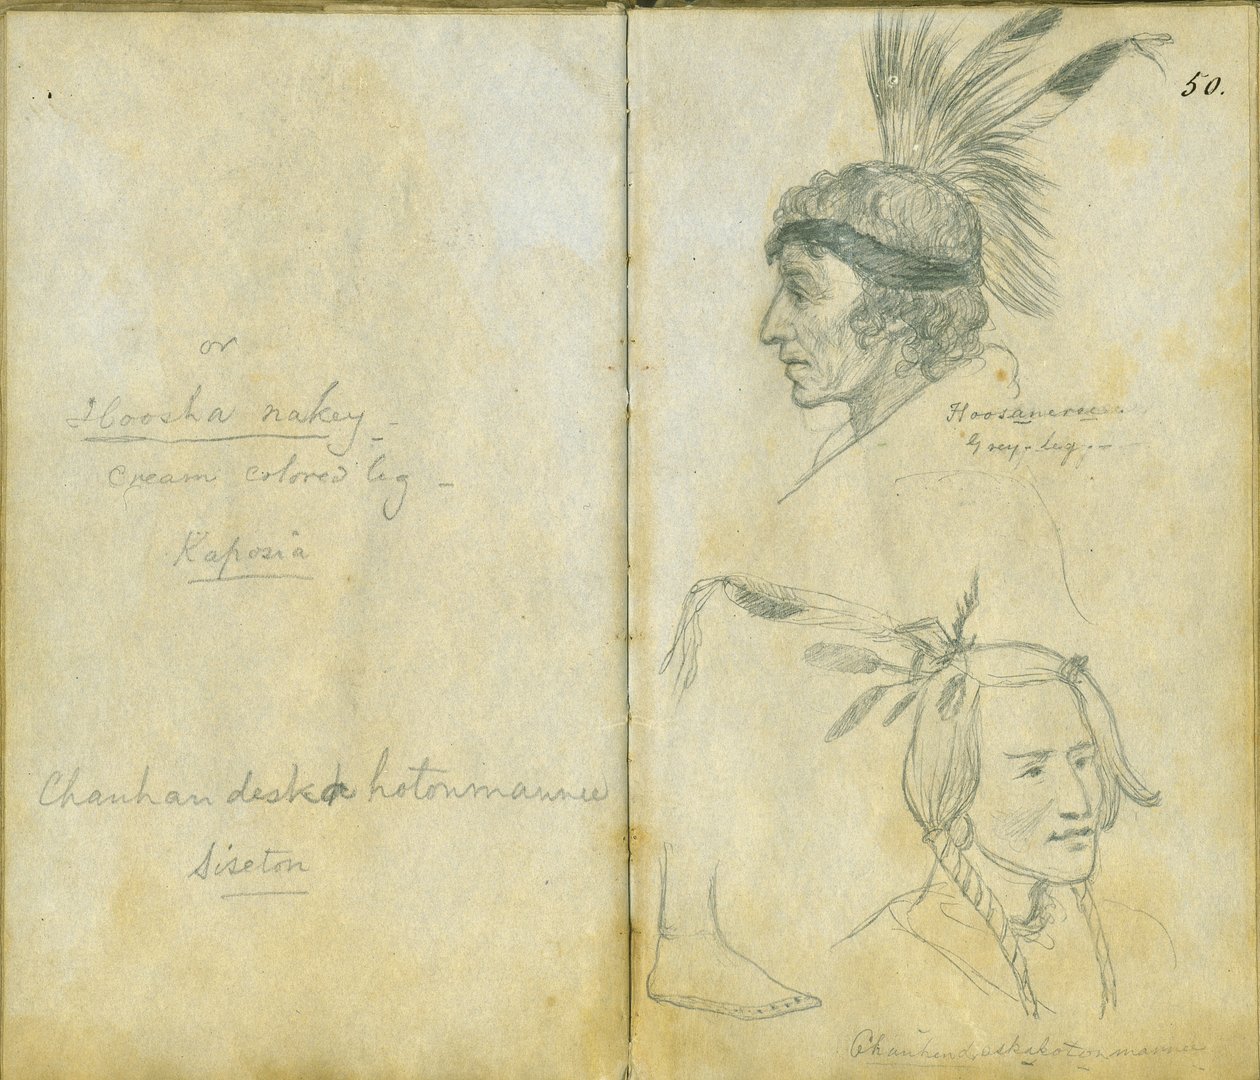 or
Hoosha nakey -
Cream colored leg -
Kaposia
Chanhan deska hotonmannee
Siseton
50.
Hoosanersee
Grey-leg.--